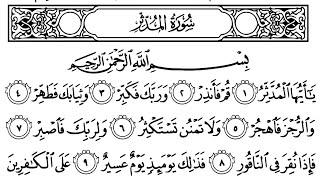 سُورَةُ المُدَّثِّرِ
بِسْمِ اللَّهِ الرَّحْمَٰنِ الرَّحِيمِ
يَا أَيُّهَا الْمُدَّثِّرُ ١ قُمْ فَأَنذِرْ ٢ وَرَبَّكَ فَكَبِّرْ ٣ وَثِيَابَكَ فَطَهِّرْ ٤
وَالرُّجْزَ فَاهْجُرْ ٥ وَلَا تَمْنُن تَسْتَكْثِرُ ٦ وَلِرَبِّكَ فَاصْبِرْ ٧
فَإِذَا نُقِرَ فِي النَّاقُورِ ٨ فَذَٰلِكَ يَوْمَئِذٍ يَوْمٌ عَسِيرٌ ٩ عَلَى الْكَافِرِينَ